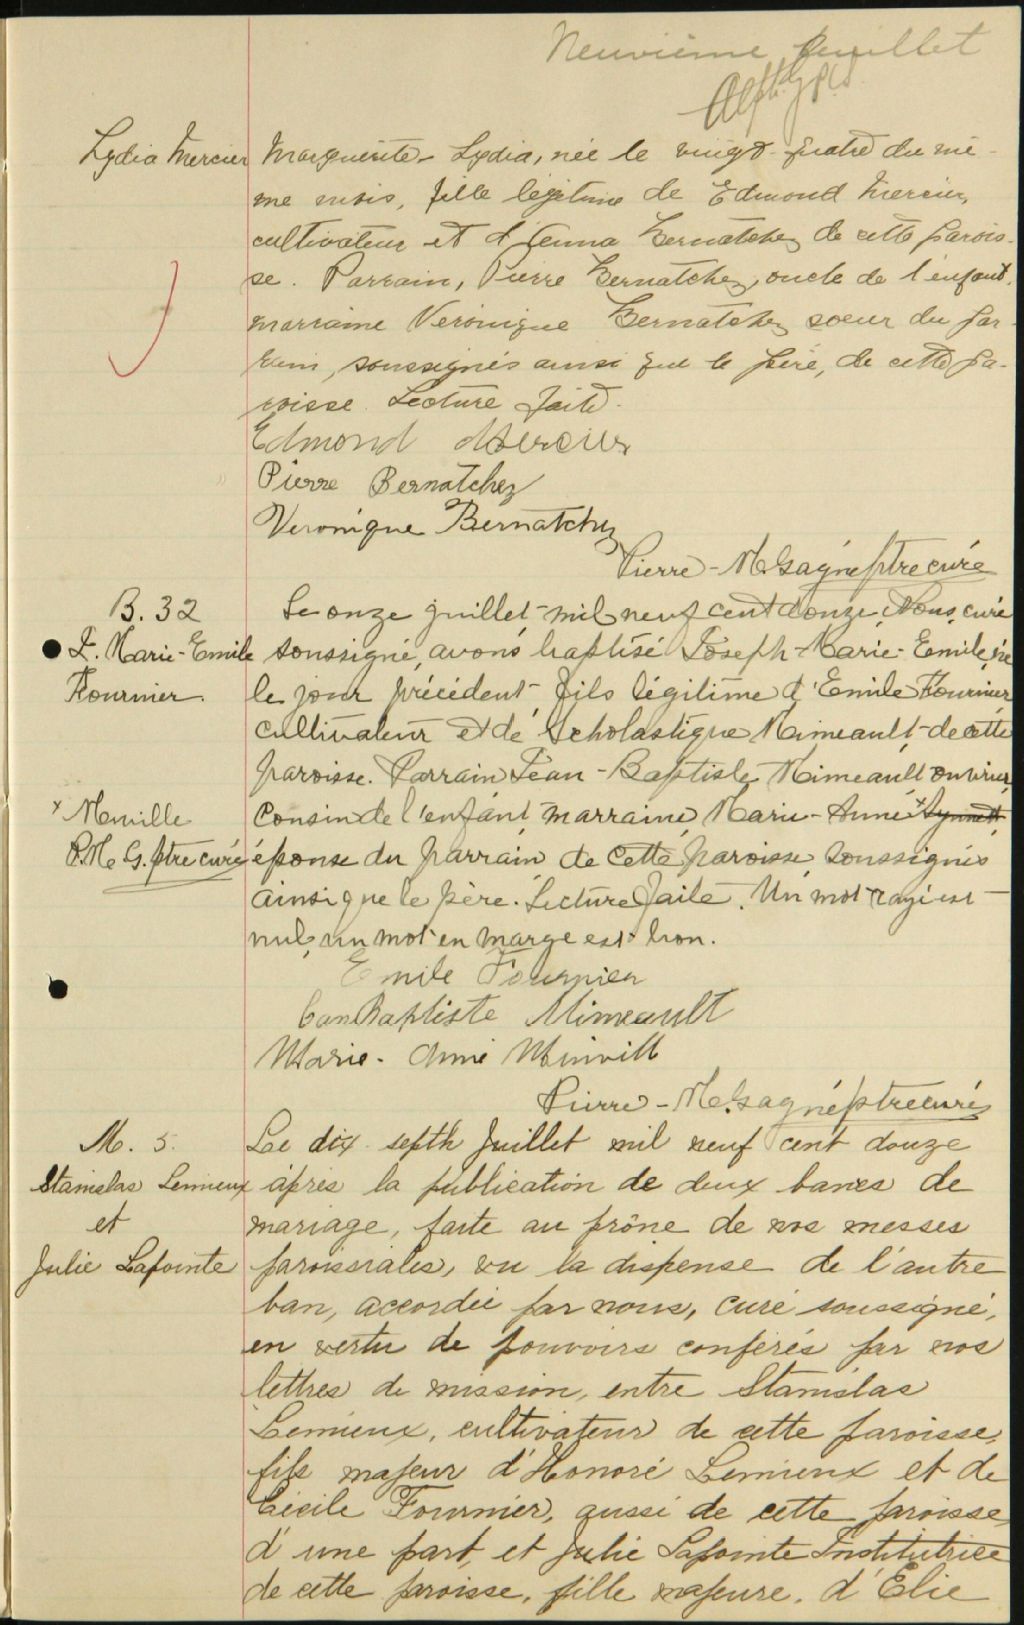 Neuvième feuillet
Lydia Mercier
Marguerite-Lydia, née le vingt-quatre du mê-
me mois, fille légitime de Edmond Mercier,
cultivateur et d'Emma Bernatchez de cette parois-
se. Parrain, Pierre Bernatchez, oncle de l'enfant,
marraine Véronique Bernatchez soeur du par-
rain, soussignés ainsi que le père, de cette pa-
roisse. Lecture faite.
Edmond Mercier
Pierre Bernatchez
Veronique Bernatchez
Pierre-M. Gagné ptre curé
B. 32
J. Marie-Emile
Fournier.
Le onze juillet mil neuf cent douze, Nous, curé
soussigné, avons baptisé Joseph-Marie-Emile, né
le jour précédent, fils légitime d'Emile Fournier
cultivateur et de Scholastique Mimeault de cette
paroisse. Parrain Jean-Baptiste Mimeault ouvrier,
cousin de l'enfant, marraine, Marie-Anne x Synnett,
x Menville
P. M. G. ptre curé
épouse du parrain de cette paroisse soussignés
ainsi que le père. Lecture faite. Un mot rayé est
nul, un mot en marge est bon.
Emile Fournier
Jean Baptiste Mimeault
Marie-Anne Minvill
Pierre-M. Gagné ptre curé
M. 5.
Stanislas Lemieux
et
Julie Lapointe
Le dix septh Juillet mil neuf cent douze
après la publication de deux bancs de
mariage, faite au prône de nos messes
paroissiales, vu la dispense de l'autre
ban, accordée par nous, curé soussigné,
en vertu de pouvoirs conférés par nos
lettres de mission, entre Stanislas
Lemieux, cultivateur de cette paroisse,
fils majeur d'Honoré Lemieux et de
Cécile Fournier, aussi de cette paroisse,
d'une part, et Julie Lapointe Institutrice
de cette paroisse, fille majeure, d'Elie